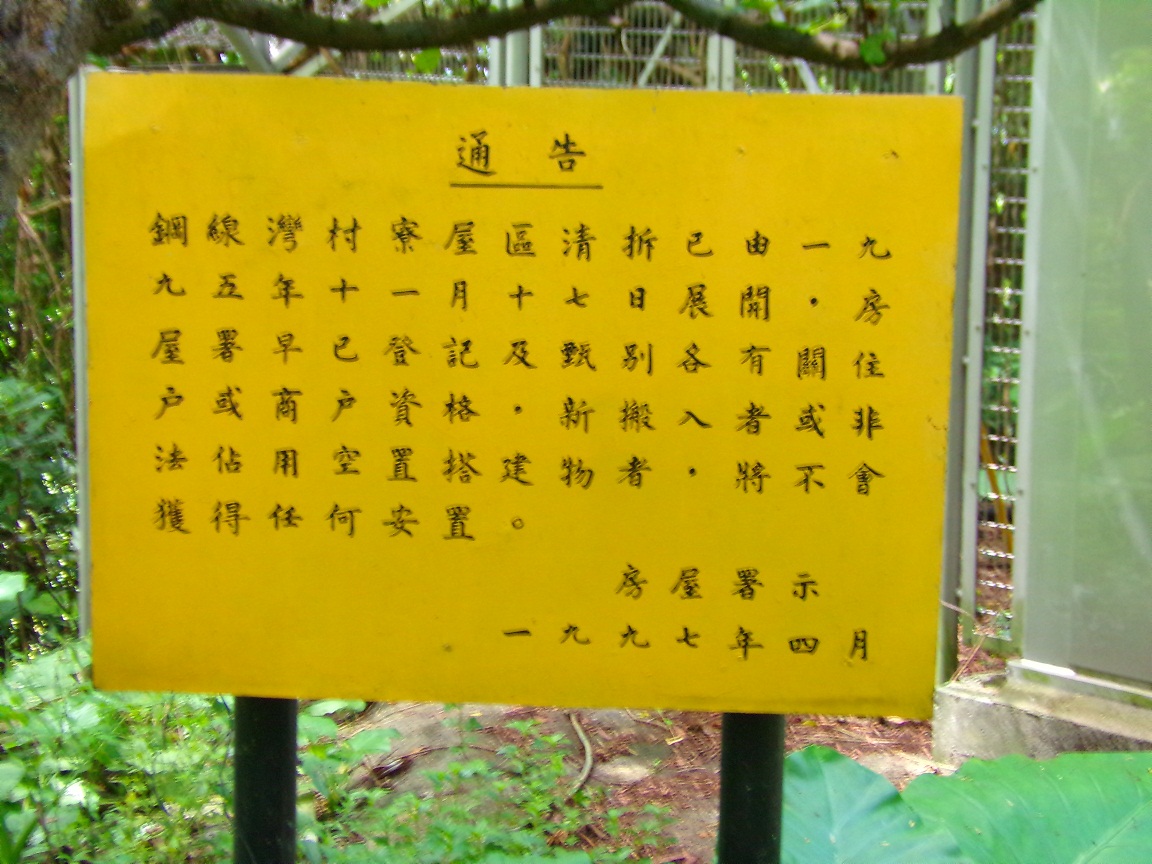 通告
鋼線灣村寮屋區清拆已由一九
九五年十一月十七日展開，房
屋署早已登記及甄别各有關住
戶或商戶資格，新搬入者或非
法佔用空置搭建物者，將不會
獲得任何安置。
房屋署示
一九九七年四月